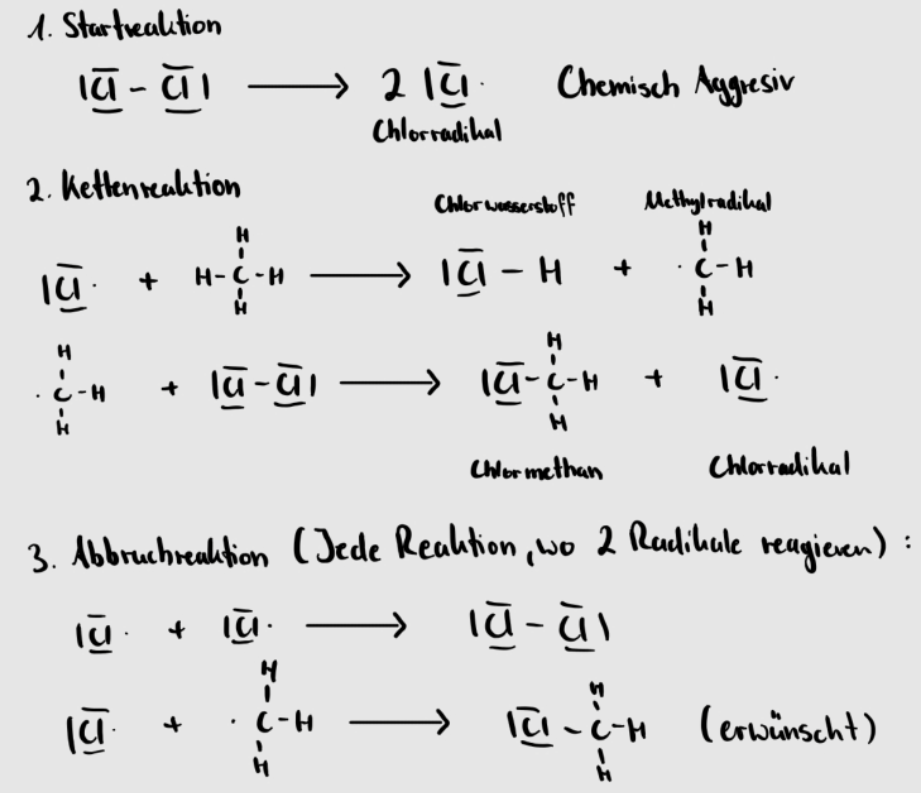 1. Startreaktion
|C̲̅l̲̅ - C̲̅l̲̅| ⟶ 2 |C̲̅l̲̅· Chemisch Aggresiv
Chlorradikal
2. Kettenreaktion
Chlorwasserstoff Methylradikal
H H
|C̲̅l̲̅· + H-C-H ⟶ |C̲̅l̲̅ - H + ·C-H
H H
H H
·C-H + |C̲̅l̲̅ - C̲̅l̲̅| ⟶ |C̲̅l̲̅-C-H + |C̲̅l̲̅·
H H
Chlormethan Chlorradikal
3. Abbruchreaktion (Jede Reaktion, wo 2 Radikale reagieren) :
|C̲̅l̲̅· + |C̲̅l̲̅· ⟶ |C̲̅l̲̅ - C̲̅l̲̅|
H H
|C̲̅l̲̅· + ·C-H ⟶ |C̲̅l̲̅ - C-H (erwünscht)
H H